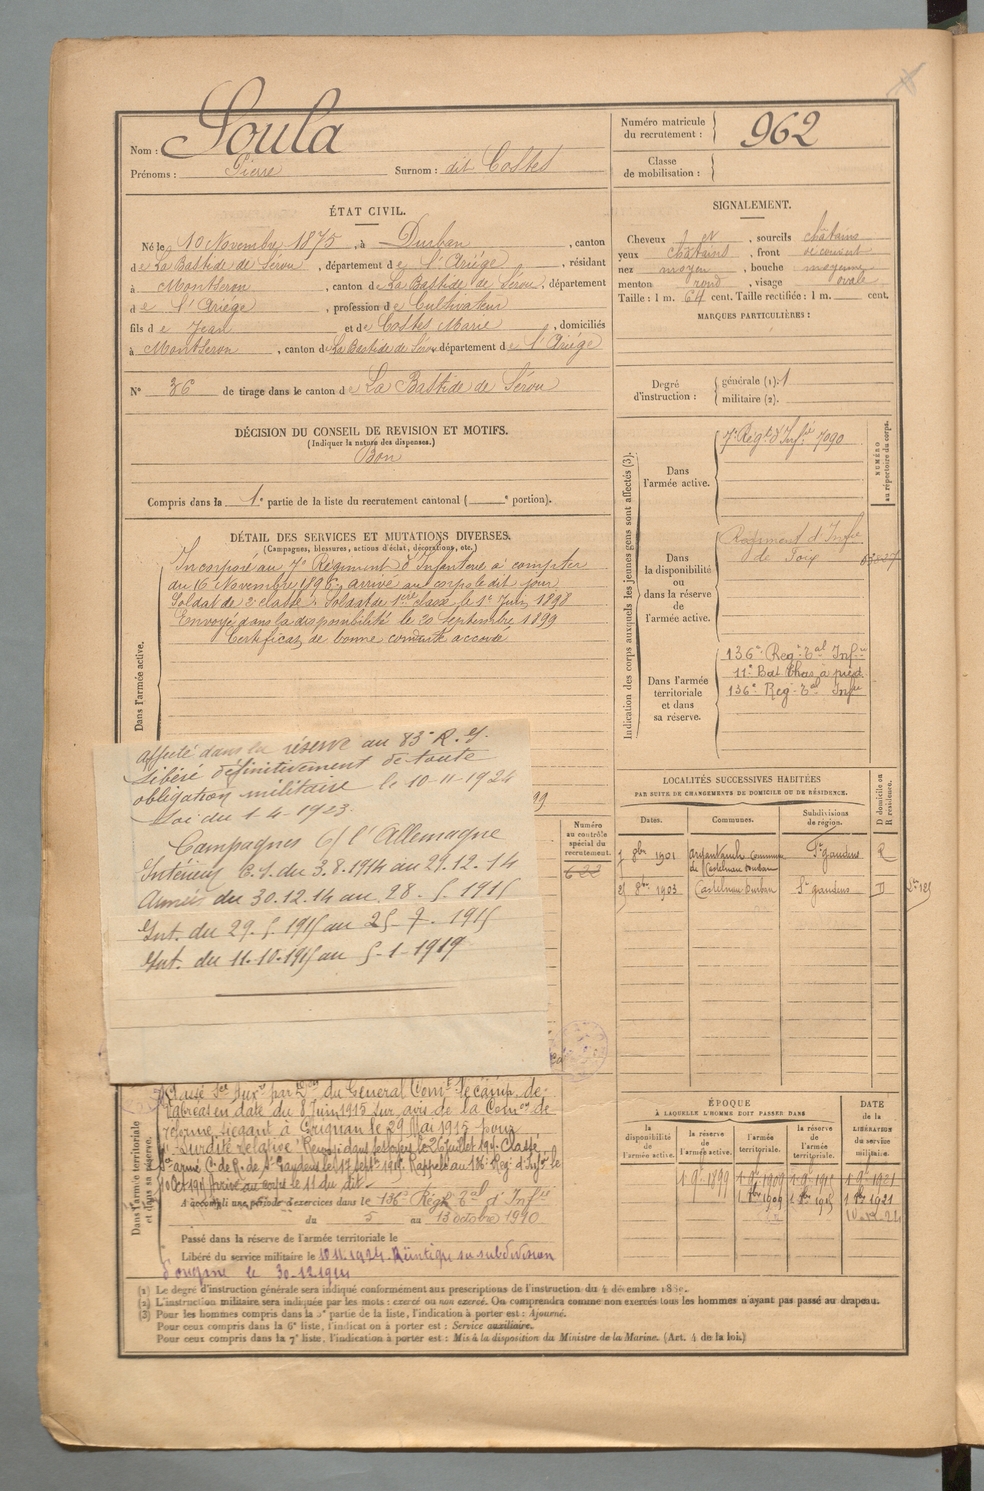 Nom : Soula
Prénoms : Pierre Surnom : dit Costes
Numéro matricule du recrutement : 962
Classe de mobilisation :
ÉTAT CIVIL.
Né le 10 Novembre 1875, à Durban, canton
de La Bastide de Sérou, département de l'Ariége, résidant
à Montseron, canton de La Bastide de Sérou, département
de l'Ariége, profession de Cultivateur
fils de Jean et de Costes Marie, domiciliés
à Montseron, canton de La Bastide de Sérou département de l'Ariége
N° 36 de tirage dans le canton de La Bastide de Sérou
SIGNALEMENT.
Cheveux, sourcils châtains
yeux châtains, front découvert
nez moyen, bouche moyenne
menton rond, visage ovale
Taille : 1 m. 64 cent. Taille rectifiée : 1 m. cent.
MARQUES PARTICULIÈRES :
Degré d'instruction : générale (1). 1
militaire (2).
DÉCISION DU CONSEIL DE REVISION ET MOTIFS.
(Indiquer la nature des dispenses.)
Bon
Compris dans la 1e partie de la liste du recrutement cantonal ( e portion).
DÉTAIL DES SERVICES ET MUTATIONS DIVERSES.
(Campagnes, blessures, actions d'éclat, décorations, etc.)
Dans l'armée active.
Incorporé au 7e Régiment d'Infanterie à compter
du 16 Novembre 1896, arrivé au corps le dit jour
Soldat de 2e classe. Soldat de 1ère classe le 1er Juin 1898
Envoyé dans la disponibilité le 20 Septembre 1899
Certificat de bonne conduite accordé
Affecté dans la réserve au 83e R.I.
Libéré définitivement de toute
obligation militaire le 10-11-1924
Loi du 1-4-1923.
Campagnes C/ l'Allemagne
Intérieur C.S. du 3.8.1914 au 29.12.14
Armées du 30.12.14 au 28.5.1915
Int. du 29.5.1915 au 25-7-1915
Int. du 11-10-1915 au 5-1-1919
Numéro au contrôle spécial du recrutement.
622
Indication des corps auxquels les jeunes gens sont affectés (3).
NUMÉRO au répertoire du corps.
Dans l'armée active.
7e Régt d'Infie 7090
Dans la disponibilité ou dans la réserve de l'armée active.
Régiment d'Infie
de Foix
Dans l'armée territoriale et dans sa réserve.
136e Reg. Tal Infie
11e Bat Chas à pied
136e Reg. Tal Infie
LOCALITÉS SUCCESSIVES HABITÉES
PAR SUITE DE CHANGEMENTS DE DOMICILE OU DE RÉSIDENCE.
Dates. Communes. Subdivisions de région. D domicile ou R résidence.
7 8bre 1901 Commune de Castelnau Durban St gaudens R
25 8bre 1903 Castelnau-Durban St gaudens D
ÉPOQUE
À LAQUELLE L'HOMME DOIT PASSER DANS
la disponibilité de l'armée active. la réserve de l'armée active. l'armée territoriale. la réserve de l'armée territoriale. DATE de la LIBÉRATION du service militaire.
1 9e 1899 1 9e 1909 1 9e 1915 1 9e 1921
1 8bre 1909 1 8bre 1915 1 8bre 1921
Dans l'armée territoriale et dans sa réserve.
Classé Sce Auxre par du Général Comt le camp de
en date du 8 Juin 1915 sur avis de la Comon de
réforme siégeant à Grignan le 29 Mai 1915 pour
"Surdité relative" Classé
Sce armé Con de R. de St Gaudens le 17 Septe 1915. Rappelé au 136e Reg. d'Infie le
10 Oct 1915 arrivé au corps le 11 du dit.
A accompli une période d'exercices dans le 136e Régt Tal d'Infie
du 5 au 13 octobre 1910
Passé dans la réserve de l'armée territoriale le
Libéré du service militaire le 10.11.1924. Réintégré sa subdivision
d'origine le 30.12.1914
(1) Le degré d'instruction générale sera indiqué conformément aux prescriptions de l'instruction du 4 décembre 1889.
(2) L'instruction militaire sera indiquée par les mots : exercé ou non exercé. On comprendra comme non exercés tous les hommes n'ayant pas passé au drapeau.
(3) Pour les hommes compris dans la 5e partie de la liste, l'indication à porter est : Ajourné.
Pour ceux compris dans la 6e liste, l'indication à porter est : Service auxiliaire.
Pour ceux compris dans la 7e liste, l'indication à porter est : Mis à la disposition du Ministre de la Marine. (Art. 4 de la loi.)